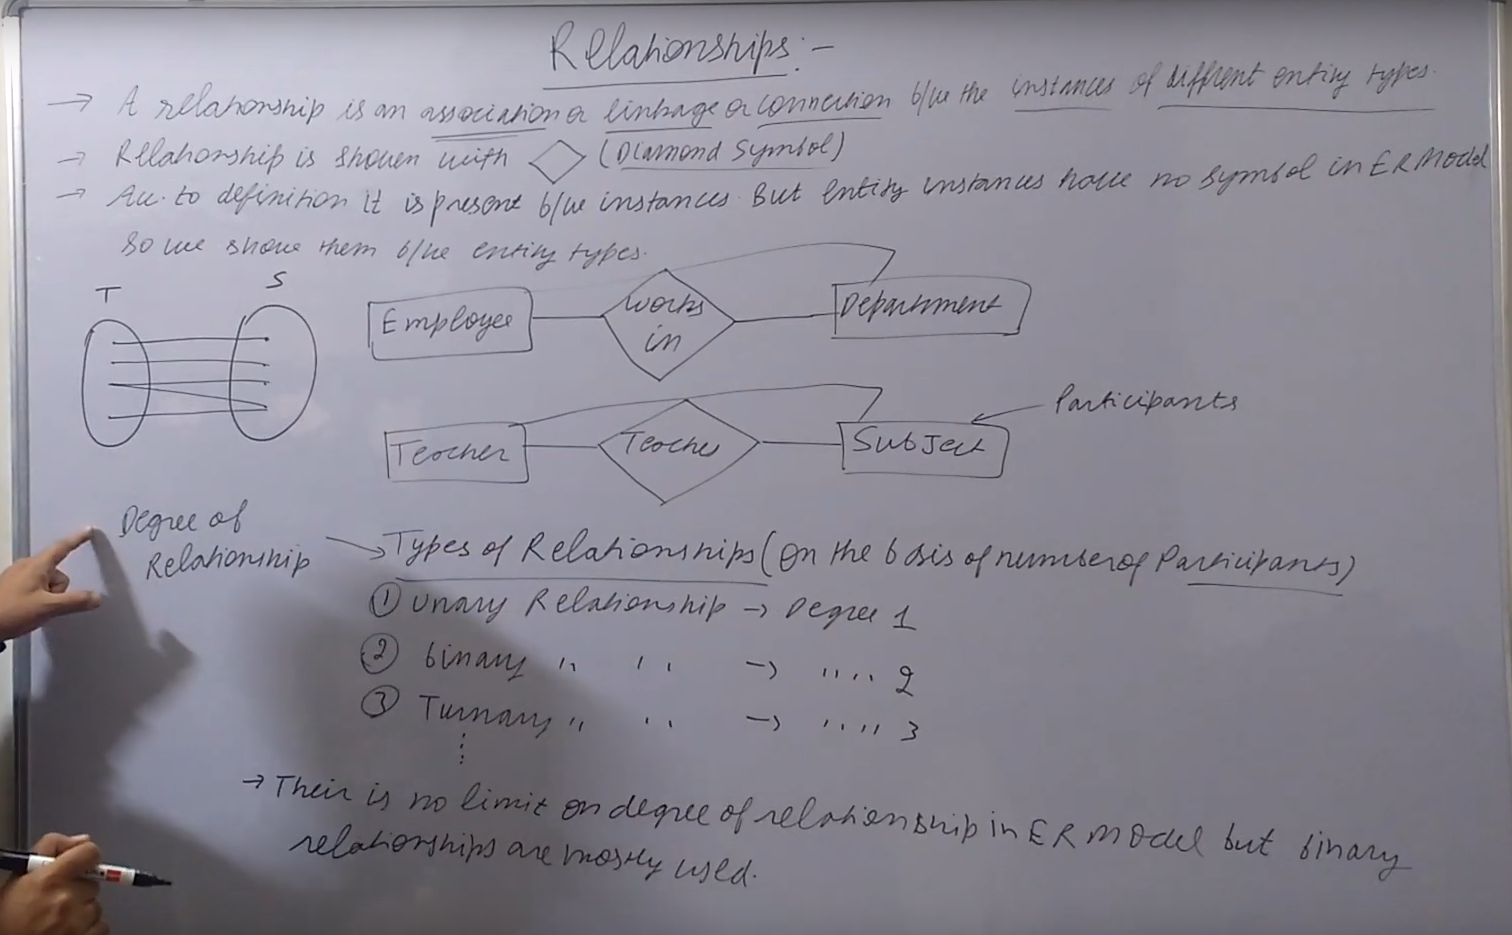 Relationships:-
→ A relationship is an association or linkage or connection b/w the instances of diffrent entity types.
→ Relationship is shown with ◇ (Diamond Symbol)
→ Acc. to definition it is present b/w instances. But entity instances have no symbol in ER Model
So we show them b/w entity types.
T S
Employee works in Department
Teacher Teaches Subject
Participants
Degree of
Relationship
→ Types of Relationships (on the basis of number of Participants)
① Unary Relationship → Degree 1
② binary " " → " " 2
③ Turnary " " → " " 3
→ Their is no limit on degree of relationship in ER Model but binary
relationships are mostly used.